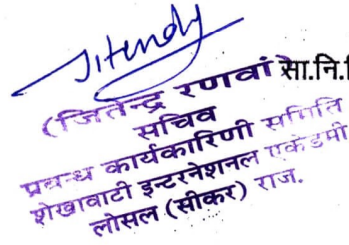 Jitendy
(जितेन्द्र रणवां सा.नि.वि
सचिव
प्रबन्ध कार्यकारिणी समिति
शेखावाटी इन्टरनेशनल एकेडमी
लोसल (सीकर) राज.